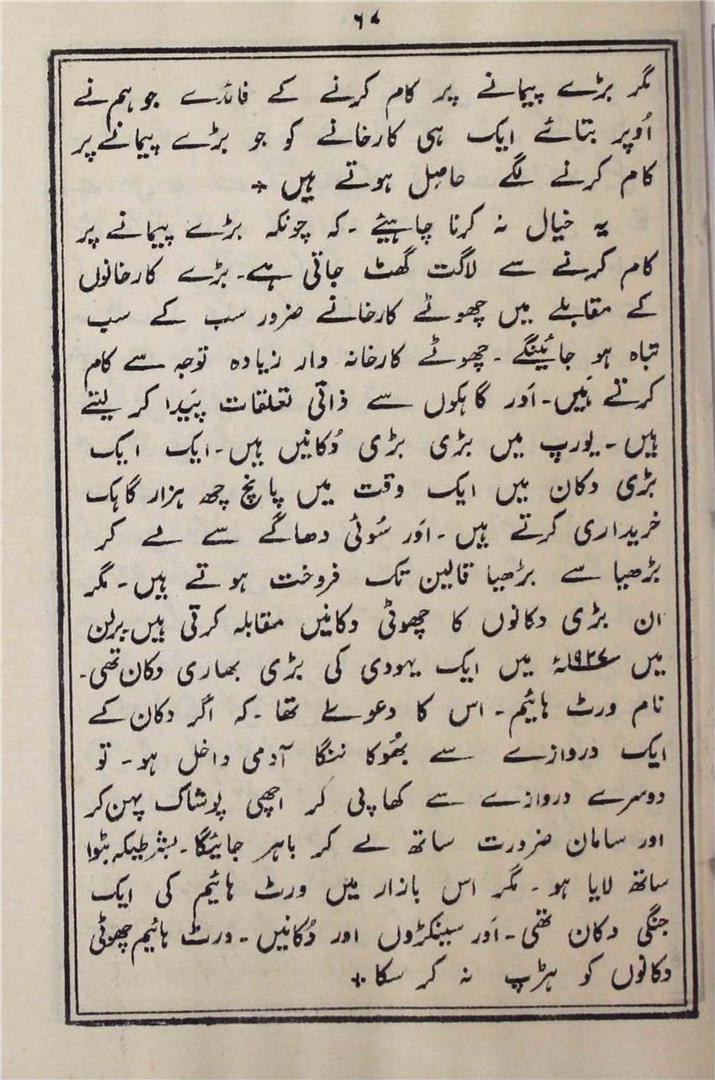 ۶۸
مگر بڑے پیمانے پر کام کرنے کے فائدے جو ہم نے
اُوپر بتائے ایک ہی کارخانے کو جو بڑے پیمانے پر
کام کرنے لگے حاصِل ہوتے ہیں +
یہ خیال نہ کرنا چاہیئے ۔ کہ چونکہ بڑے پیمانے پر
کام کرنے سے لاگت گھٹ جاتی ہے۔ بڑے کارخانوں
کے مقابلے میں چھوٹے کارخانے ضرور سب کے سب
تباہ ہو جائینگے ۔ چھوٹے کارخانہ دار زیادہ توجہ سے کام
کرتے ہَیں۔ اَور گاہکوں سے ذاتی تعلقات پَیدا کر لیتے
ہیں ۔ یورپ میں بڑی بڑی دُکانیں ہیں ۔ ایک ایک
بڑی دکان میں ایک وقت میں پانچ چھ ہزار گاہک
خریداری کرتے ہیں ۔ اَور سُوئی دھاگے سے لے کر
بڑھیا سے بڑھیا قالین تک فروخت ہوتے ہیں ۔ مگر
ان بڑی دکانوں کا چھوٹی دکانیں مقابلہ کرتی ہیں۔ برلن
میں ۱۹۲۷ء میں ایک یہودی کی بڑی بھاری دکان تھی۔
نام ورٹ ہائیم ۔ اس کا دعوےٰ تھا ۔ کہ اگر دکان کے
ایک دروازے سے بھُوکا ننگا آدمی داخل ہو ۔ تو
دوسرے دروازے سے کھا پی کر اچھی پوشاک پہن کر
اور سامان ضرورت ساتھ لے کر باہر جائیگا ۔ بشرطیکہ بٹوا
ساتھ لایا ہو ۔ مگر اس بازار میں ورٹ ہائیم کی ایک
جنگی دکان تھی ۔ اَور سینکڑوں اور دُکانیں ۔ ورٹ ہائیم چھوٹی
دکانوں کو ہڑپ نہ کر سکا +